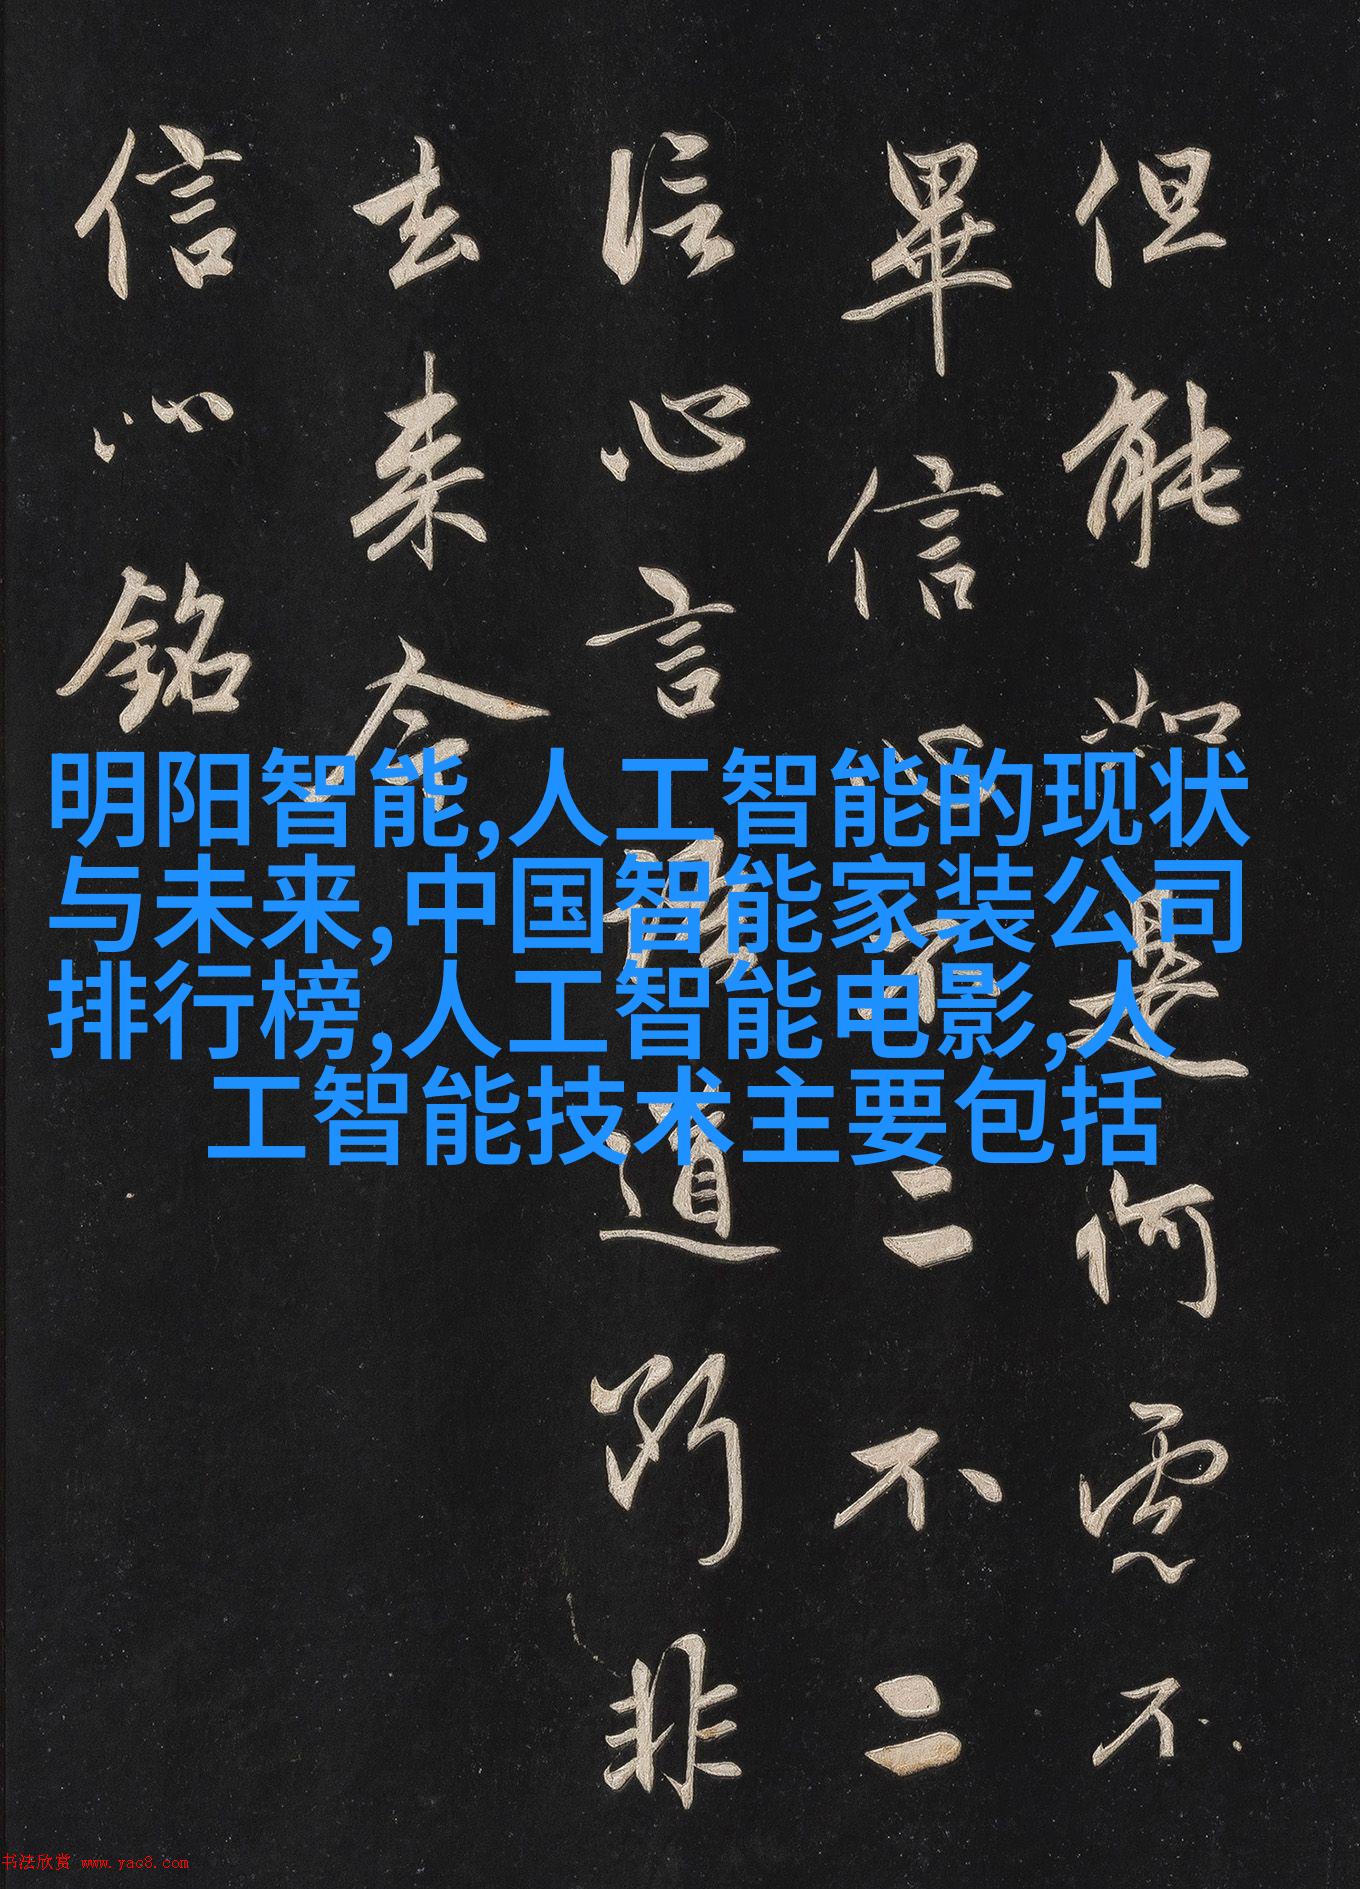 但能如是何慮不
畢信心不二不二
信心言語道断非
去来今
信心銘
明阳智能,人工智能的现状
与未来,中国智能家装公司
排行榜,人工智能电影,人
工智能技术主要包括
书法欣赏 www.yac8.com